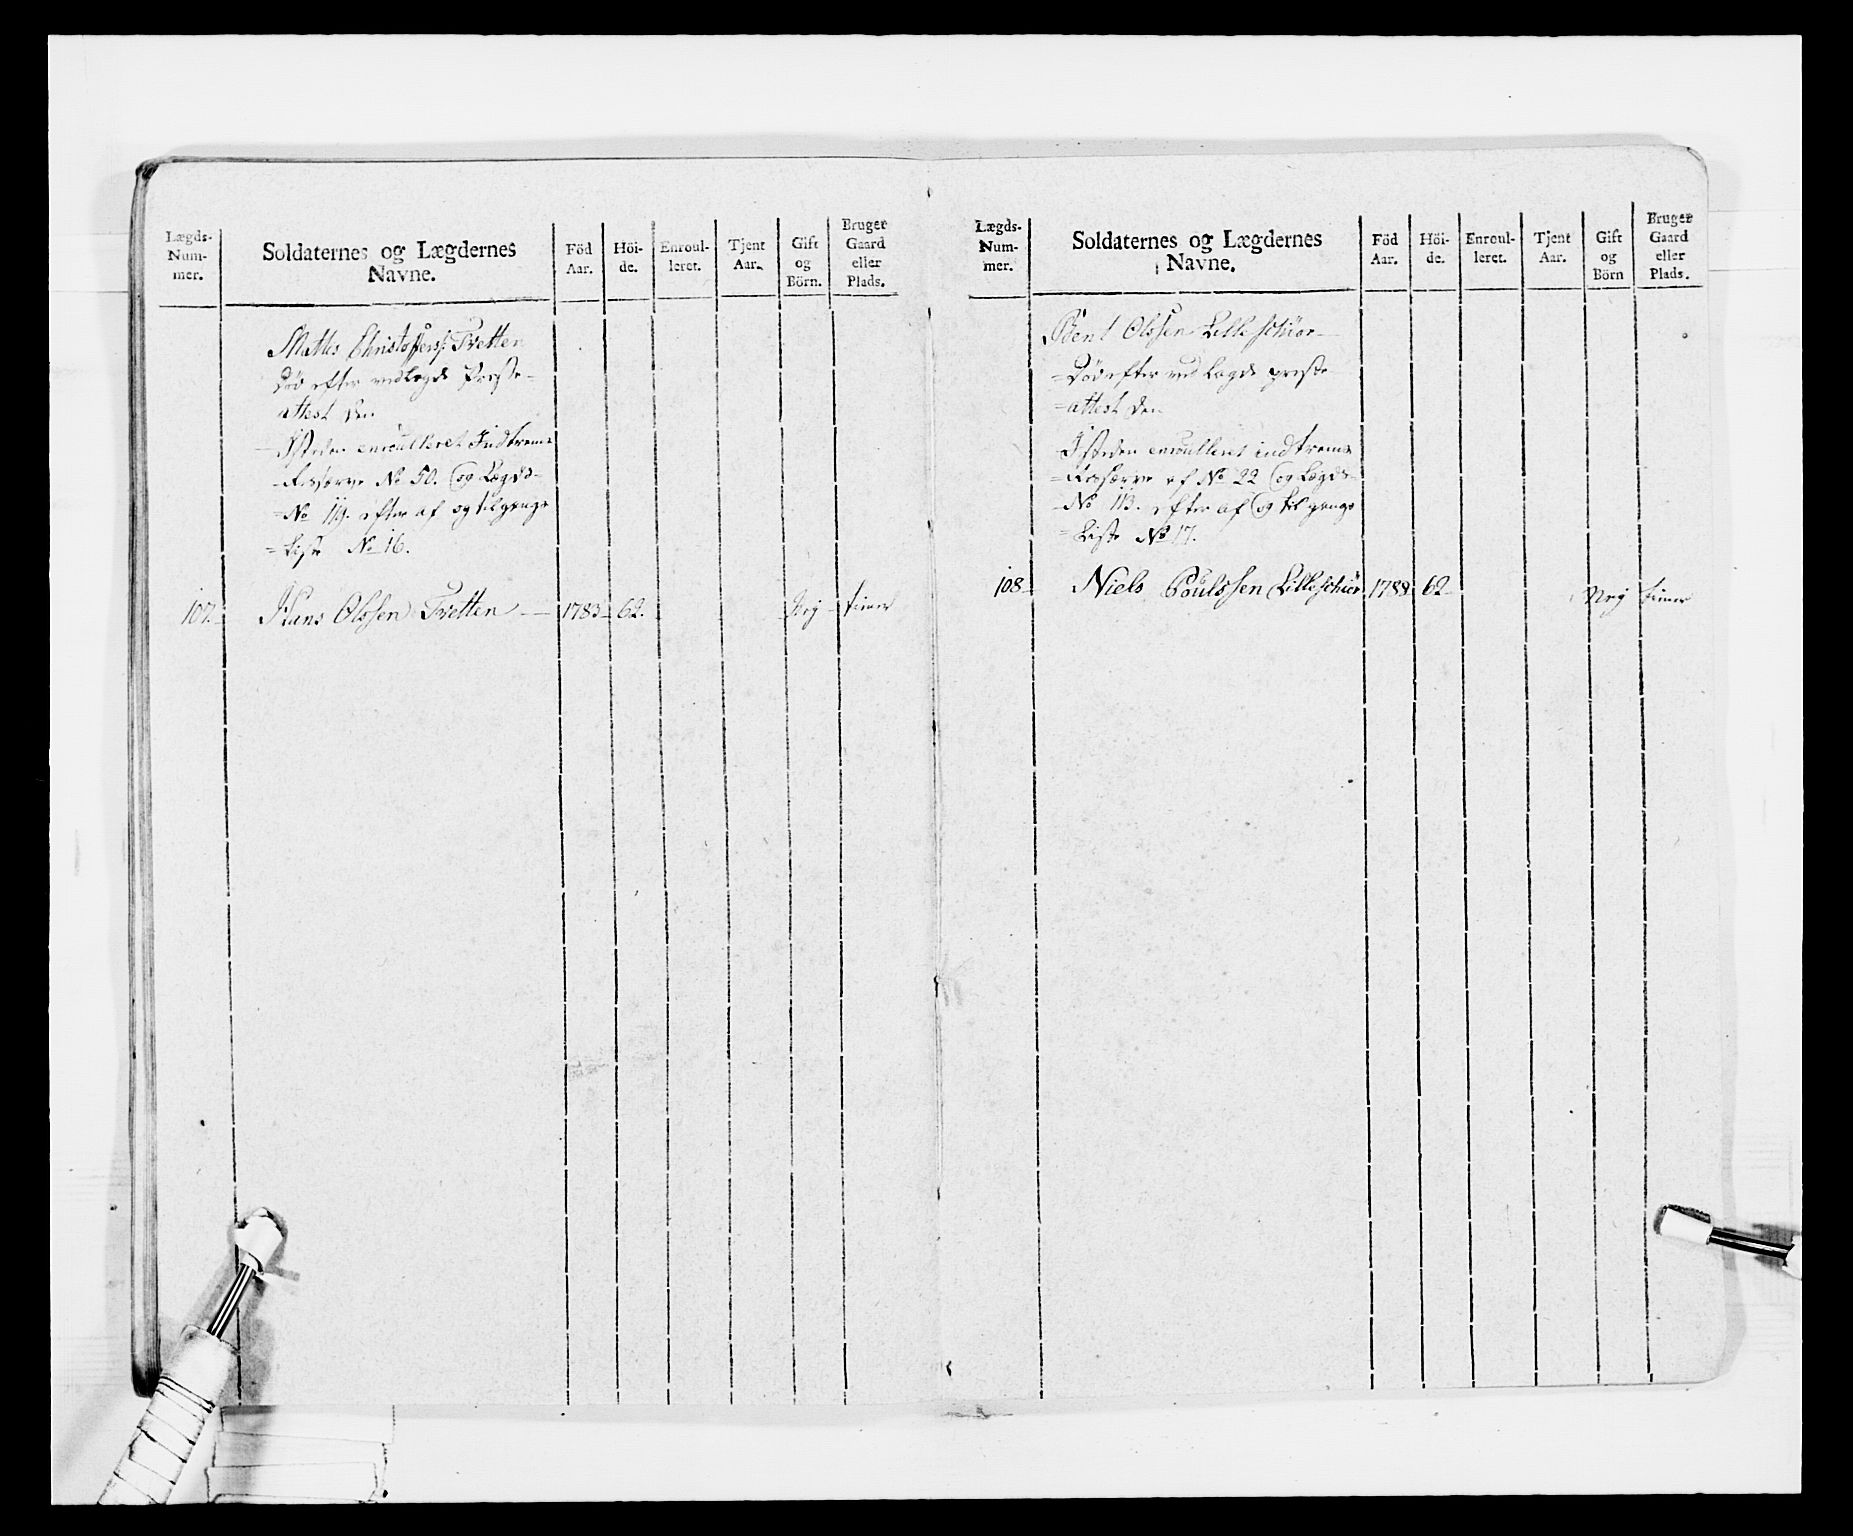 Lægds-
Num-
mer.
Soldaternes og Lægdernes
Navne.
Föd
Aar.
Höi-
de.
Enroul-
leret.
Tjent
Aar.
Gift
og
Börn.
Bruger
Gaard
eller
Plads.
Mathis Christoffers: Tretten
Død efter vedlagde Præste-
attest den
Isteden enroulleret Indkoms
Reserve No 50. og Lægds-
No 119. efter af og tilgangs
Liste No 16.
107. Hans Olssen Tretten 1783 62. Nej
Lægds-
Num-
mer.
Soldaternes og Lægdernes
Navne.
Föd
Aar.
Höi-
de.
Enroul-
leret.
Tjent
Aar.
Gift
og
Börn
Bruger
Gaard
eller
Plads.
Bent Olssen Lilleschiør
Død efter vedlagde præste
attest den
Isteden enroulleret
Reserve af No 22 og Lægds-
No 113. efter af og tilgangs
Liste No 17.
108 Niels Poulssen Lilleschiør 1788 62 Nej